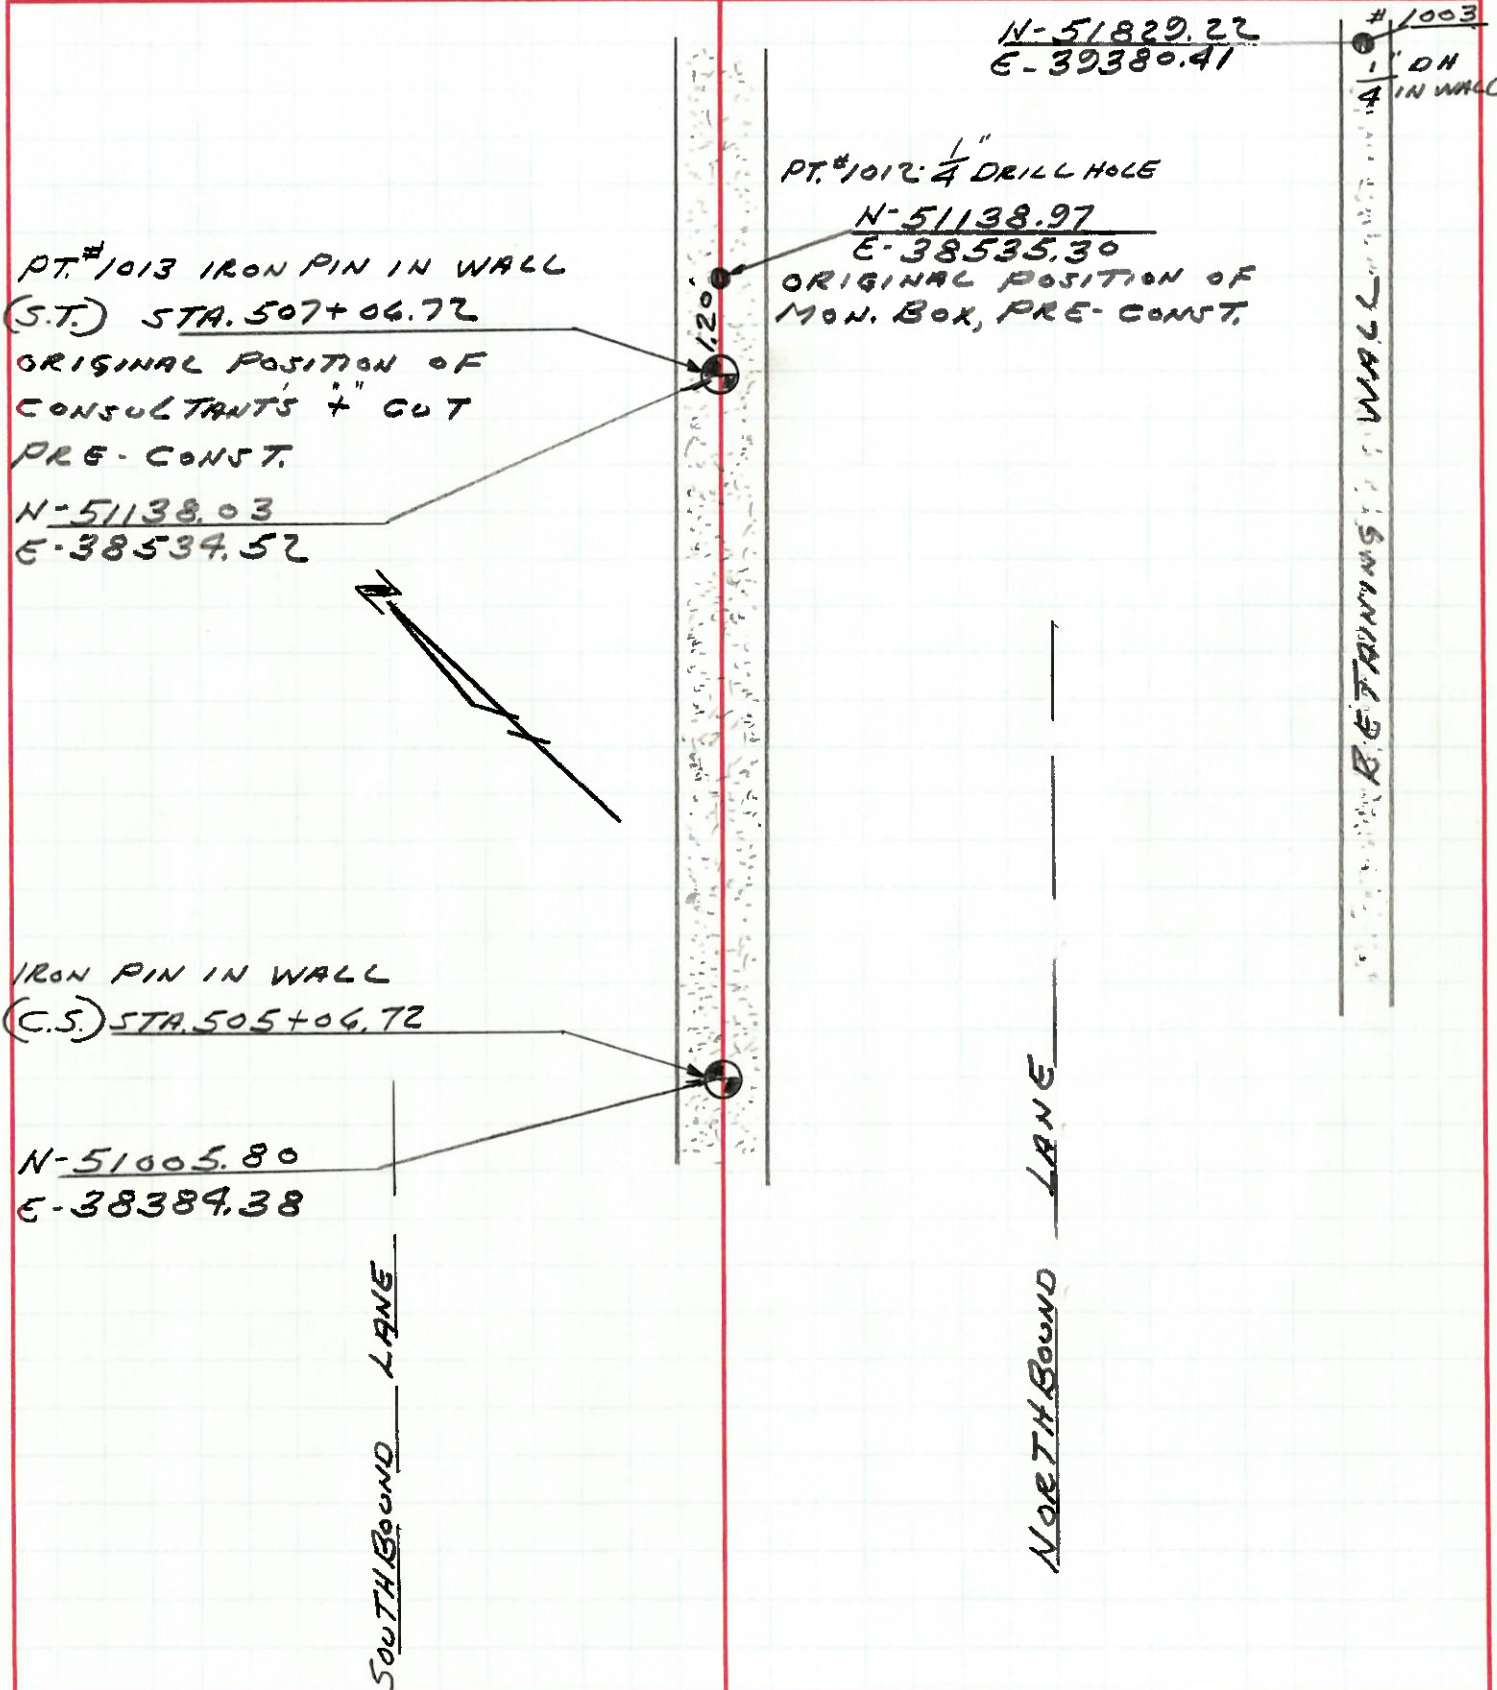 N-51829.22
E-39380.41
# 1003
1/4" DH
IN WALL
PT.#1012. 1/4" DRILL HOLE
N-51138.97
E-38535.30
ORIGINAL POSITION OF
MON. BOX, PRE-CONST.
PT.#1013 IRON PIN IN WALL
(S.T.) STA. 507+06.72
ORIGINAL POSITION OF
CONSULTANT'S "+" CUT
PRE-CONST.
N-51138.03
E-38534.52
1.20'
N
RETAINING WALL
IRON PIN IN WALL
(C.S.) STA. 505+06.72
N-51005.80
E-38384.38
SOUTHBOUND LANE
NORTHBOUND LANE